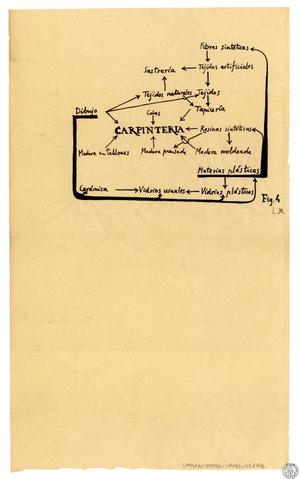 Fibras sintéticas
Sastrería Tejidos artificiales
Tejidos naturales Tejidos
Dibujo Colas Tapicería
CARPINTERIA Resinas sintéticas
Madera en tablones Madera prensada Madera moldeada
Materias plásticas
Cerámica Vidrios usuales Vidrios plásticos
Fig. 4